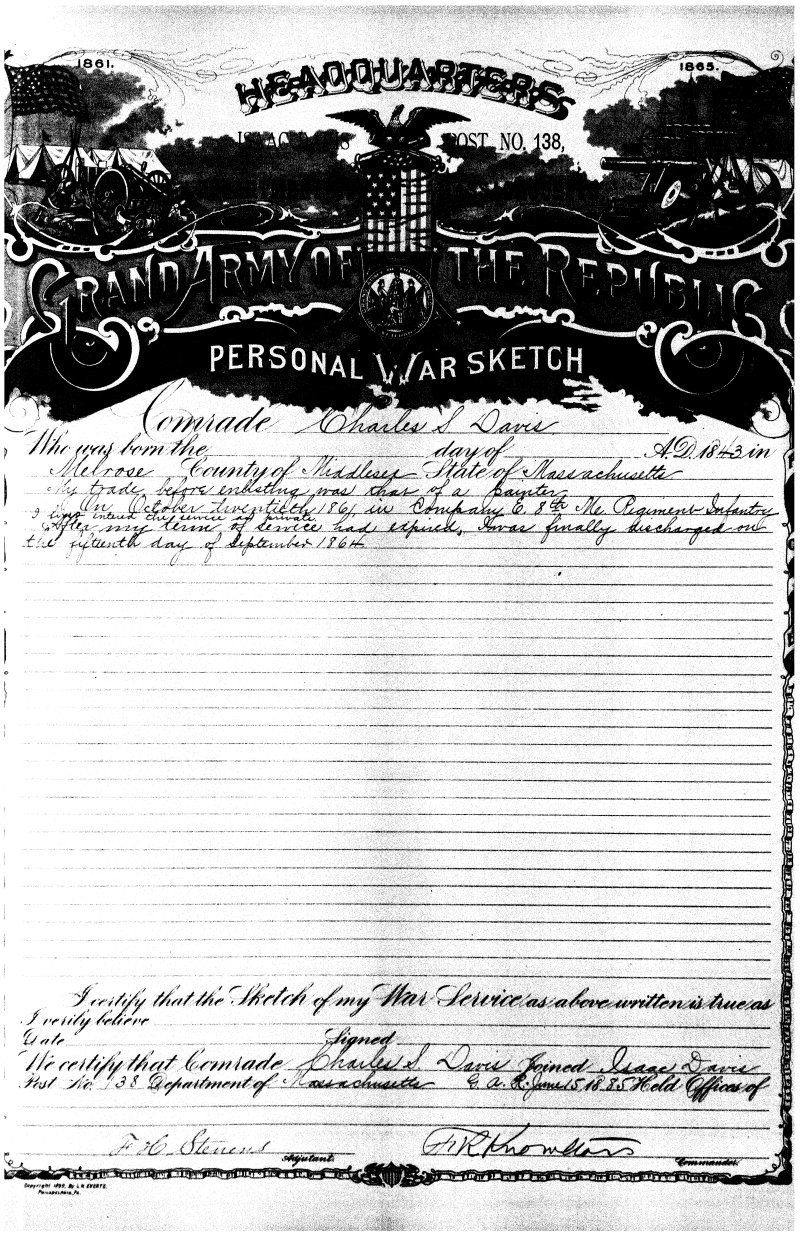 1861.
1865.
HEADQUARTERS
POST NO. 138,
GRAND ARMY OF THE REPUBLIC
PERSONAL WAR SKETCH
Comrade Charles S Davis
Who was born the day of A.D. 1843 in
Melrose County of Middlesex State of Massachusetts
My trade before enlisting was that of a painter
In October twentieth 1861 in Company E. 8th Me. Regiment Infantry
I first entered the service as private
After my term of service had expired, I was finally discharged on
the fifteenth day of September 1864
I certify that the Sketch of my War Service as above written is true as
I verily believe
Date Signed
We certify that Comrade Charles S. Davis Joined Isaac Davis
Post No 138 Department of Massachusetts G. A. R. June 15 1885 Held Offices of
F. H. Stevens
Adjutant.
F R Knowlton
Commander.
Copyright 1890, By L.H. EVERTS.
PHILADELPHIA, PA.